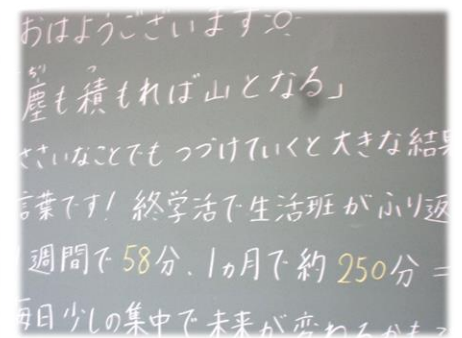 おはようございます
塵も積もれば山となる」
ささいなことでもつづけていくと大きな結果
言葉です!終学活で生活班がふり返
週間で58分、1ヵ月で約250分=
毎日少しの集中で未来が変わるかも